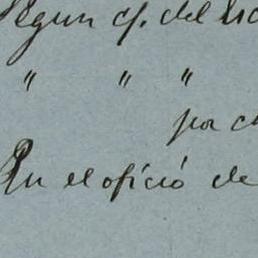 Segun cf. del
" " "
por
En el oficio de